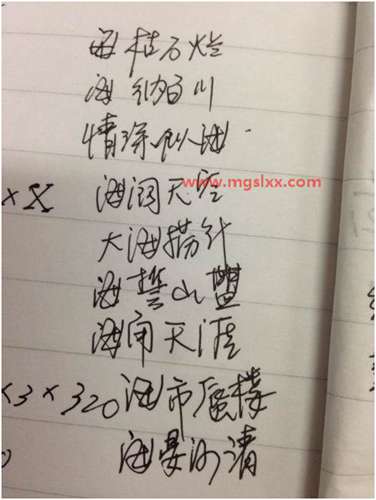 海枯石烂
海纳百川
情深似海.
×X 海阔天空
www.mgslxx.com
大海捞针
海誓山盟
海角天涯
×3×320 海市蜃楼
海晏河清